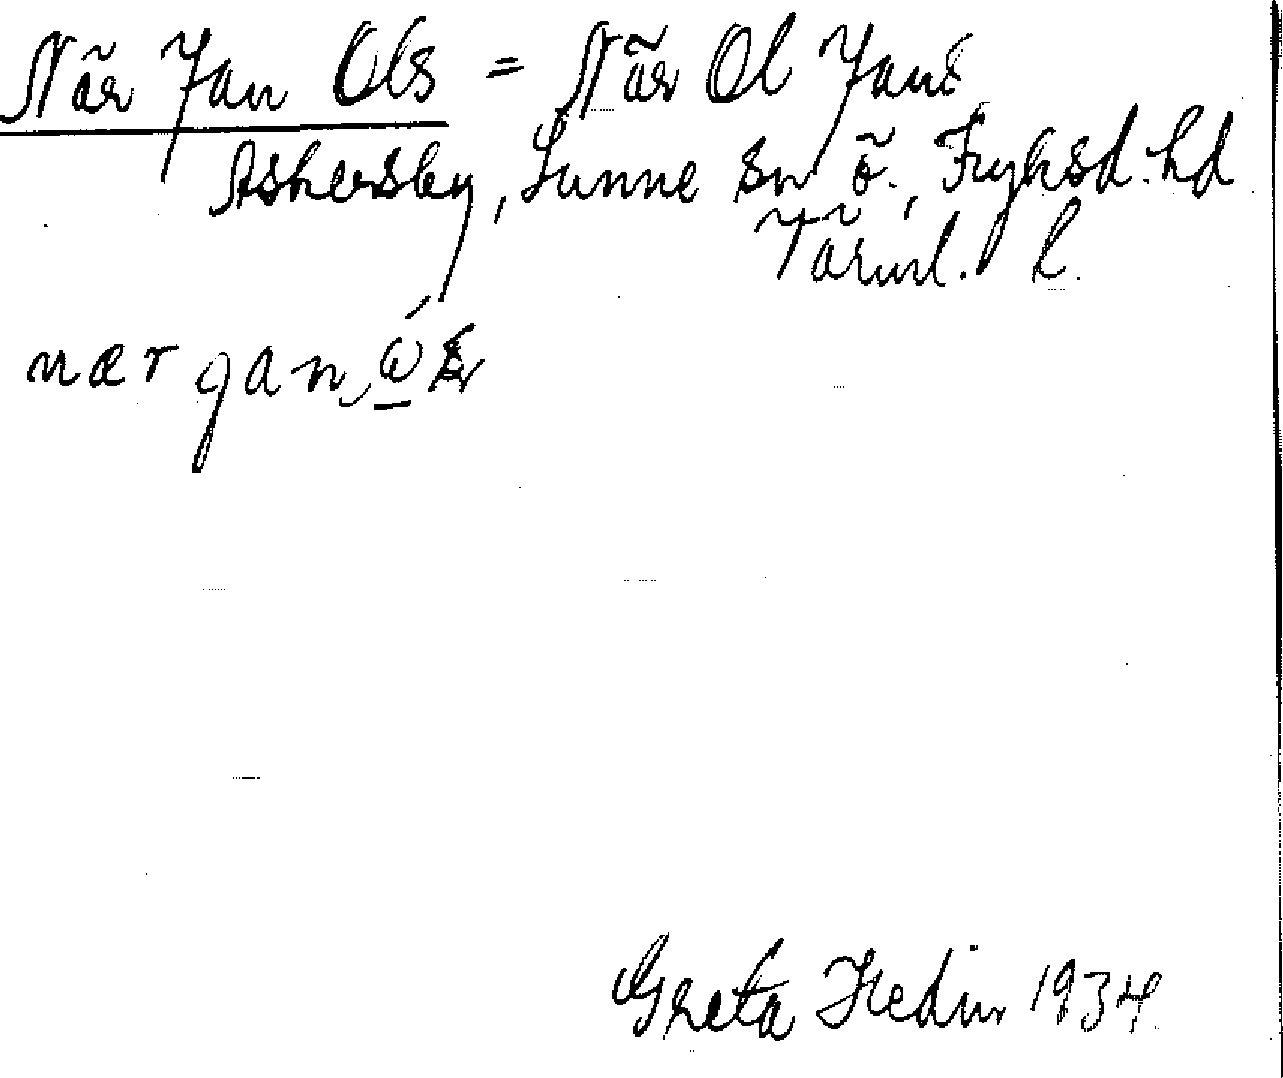 När Jan Ols = När Ol Jans
Askersby, Sunne sn ö., Fryksd. hd
Värml. l.
nær jan
Greta Hedin 1934